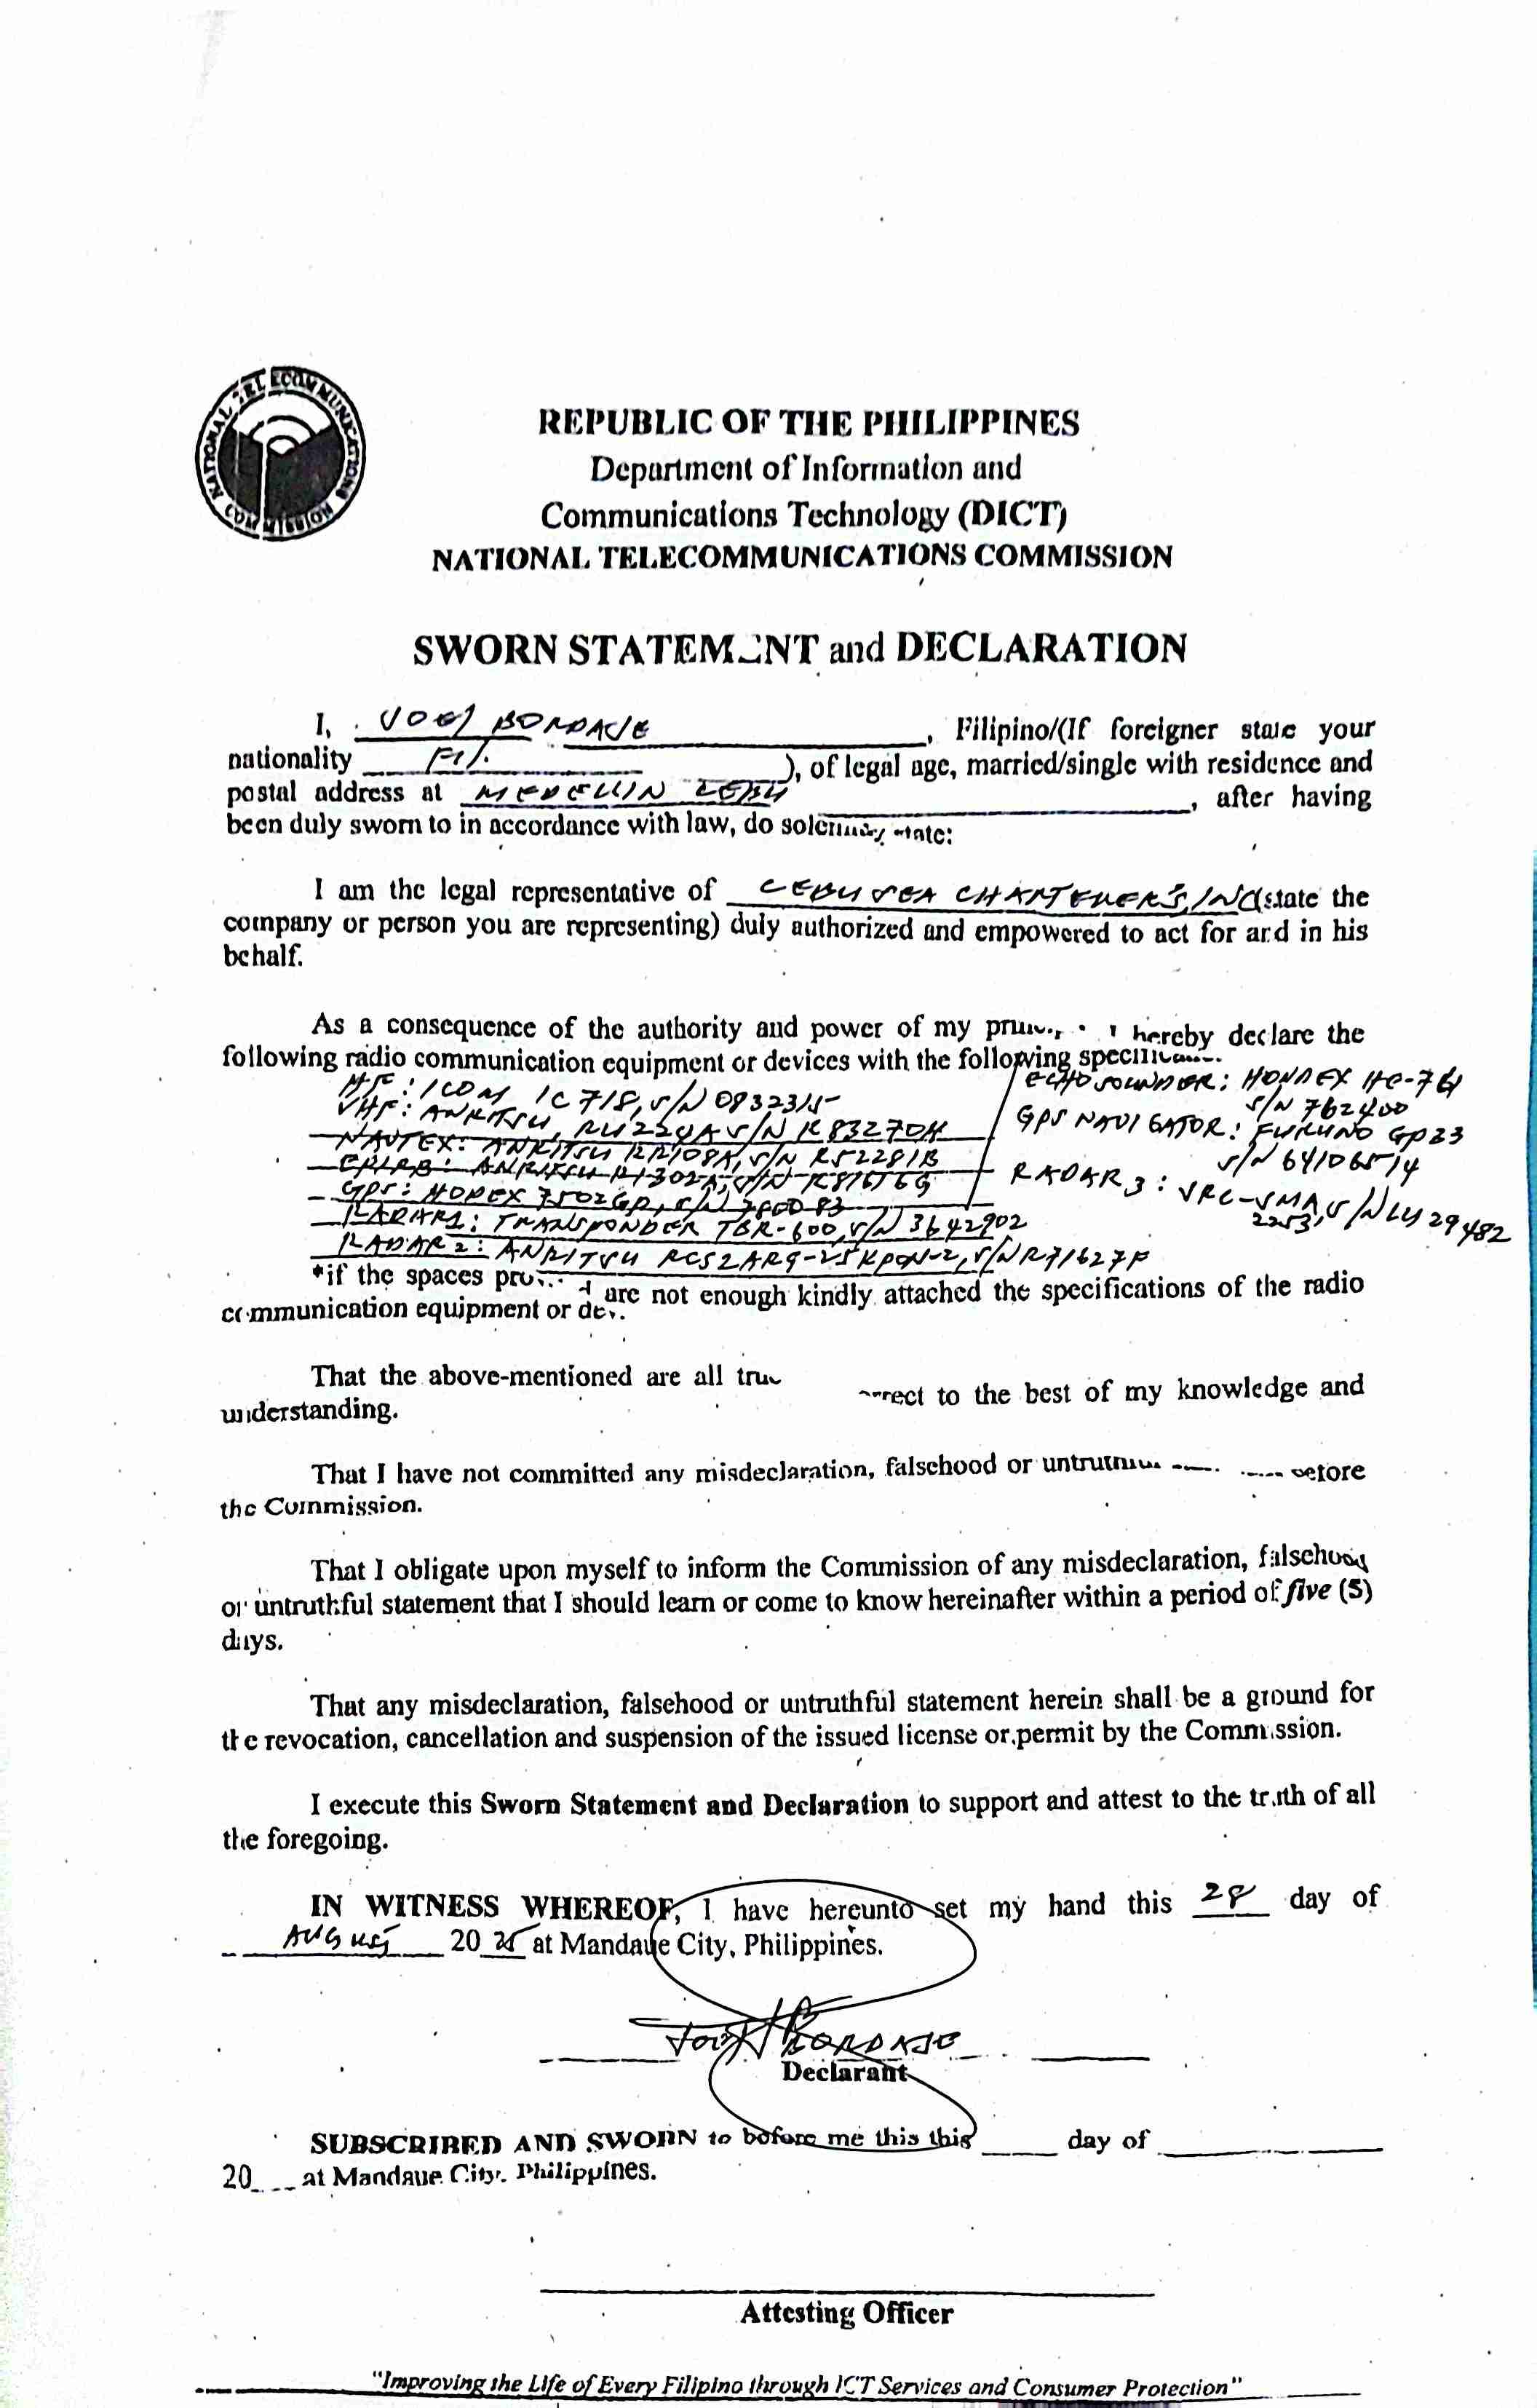 NATIONAL TELECOMMUNICATIONS COMMISSION
REPUBLIC OF THE PHILIPPINES
Department of Information and
Communications Technology (DICT)
NATIONAL TELECOMMUNICATIONS COMMISSION
SWORN STATEMENT and DECLARATION
I, BORDAJE, Filipino/(If foreigner state your
nationality FIL. ), of legal age, married/single with residence and
postal address at MEDELLIN CEBU, after having
been duly sworn to in accordance with law, do state:
I am the legal representative of CEBU SEA CHARTERERS, INC (state the
company or person you are representing) duly authorized and empowered to act for and in his
behalf.
As a consequence of the authority and power of my hereby declare the
following radio communication equipment or devices with the following
HF: ICOM IC 718, S/N
VHF: ANRITSU, S/N K83270H
NAVTEX: ANRITSU S/N R52281B
EPIRB: ANRITSU S/N
GPS: HONDEX S/N
RADAR1: TRANSPONDER TBR-600, S/N 3642902
RADAR 2: ANRITSU S/N
ECHO SOUNDER: HONDEX
S/N 762400
GPS NAVIGATOR: FURUNO GP33
S/N 64106514
RADAR 3: S/N
*if the spaces are not enough kindly attached the specifications of the radio
communication equipment or
That the above-mentioned are all to the best of my knowledge and
understanding.
That I have not committed any misdeclaration, falsehood or before
the Commission.
That I obligate upon myself to inform the Commission of any misdeclaration, falsehood
or untruthful statement that I should learn or come to know hereinafter within a period of five (5)
days.
That any misdeclaration, falsehood or untruthful statement herein shall be a ground for
the revocation, cancellation and suspension of the issued license or permit by the Commission.
I execute this Sworn Statement and Declaration to support and attest to the truth of all
the foregoing.
IN WITNESS WHEREOF, I have hereunto set my hand this 28 day of
August 20 25 at Mandaue City, Philippines.
BORDAJE
Declarant
SUBSCRIBED AND SWORN to before me this this ____ day of ____
20____ at Mandaue City, Philippines.
Attesting Officer
"Improving the Life of Every Filipino through ICT Services and Consumer Protection"